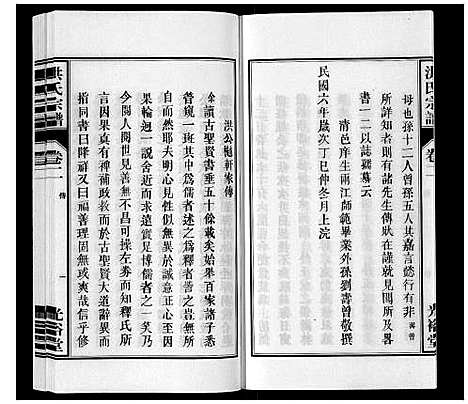 洪氏宗譜
卷一
母也孫十二人曾孫五人其嘉言懿行有非
壽曾
所詳知者有諸先生傳狀在謹就見聞所及畧
書一二以誌勒墓云
青邑庠生兩江師範畢業外孫劉壽曾敬撰
民國六年歲次丁巳仲冬月上浣
光裕堂
洪公勉軒家傳
余讀古聖賢書垂五十餘載矣始舉百家諸子而
瞥窺一班其中為儒者述之為釋者并之豈無所
自而然耶夫明心見性似無異於誠意正心至因
果輪廻一說舍近而徵遠見博儒者之一笑乃
今閱人間世見善無不昌可操左劵而知釋氏所
言因果真有裨政教而於古聖賢大道闇異而
指同書曰降祥又曰福善理固無或爽哉信乎修
洪氏宗譜
卷一
傳
一
光裕堂